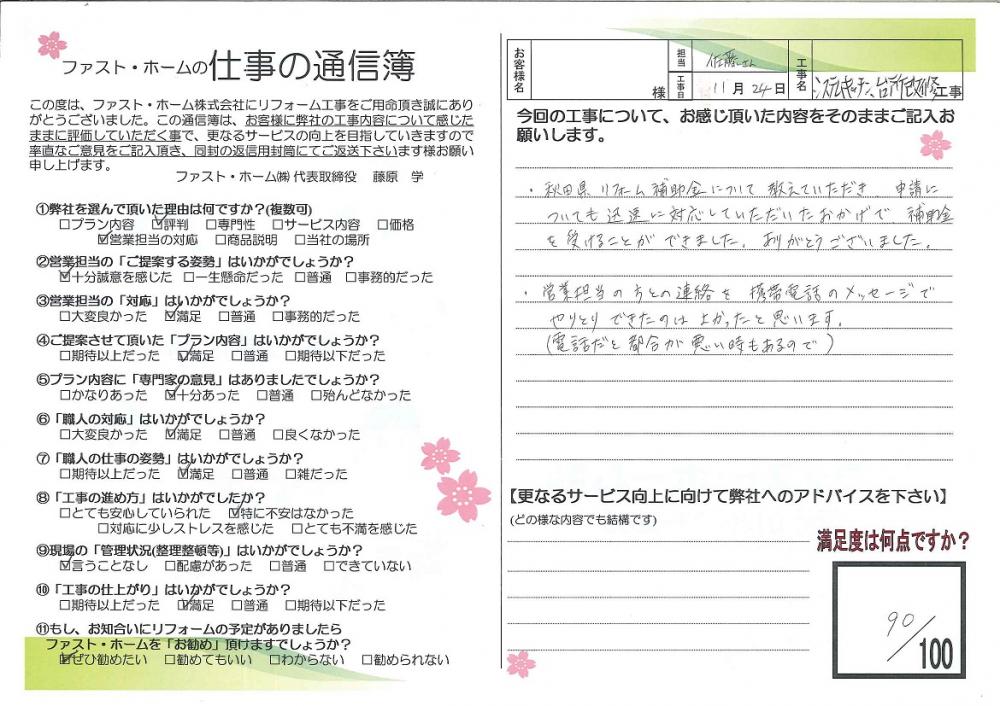 ファスト・ホームの仕事の通信簿
この度は、ファスト・ホーム株式会社にリフォーム工事をご用命頂き誠にあり
がとうございました。この通信簿は、お客様に弊社の工事内容について感じた
ままに評価していただく事で、更なるサービスの向上を目指していきますので
率直なご意見をご記入頂き、同封の返信用封筒にてご返送下さいます様お願い
申し上げます。
ファスト・ホーム㈱ 代表取締役 藤原 学
①弊社を選んで頂いた理由は何ですか?(複数可)
□プラン内容 ☑評判 □専門性 □サービス内容 □価格
☑営業担当の対応 □商品説明 □当社の場所
②営業担当の「ご提案する姿勢」はいかがでしょうか?
☑十分誠意を感じた □一生懸命だった □普通 □事務的だった
③営業担当の「対応」はいかがでしょうか?
□大変良かった ☑満足 □普通 □事務的だった
④ご提案させて頂いた「プラン内容」はいかがでしょうか?
□期待以上だった ☑満足 □普通 □期待以下だった
⑤プラン内容に「専門家の意見」はありましたでしょうか?
□かなりあった ☑十分あった □普通 □殆んどなかった
⑥「職人の対応」はいかがでしょうか?
□大変良かった ☑満足 □普通 □良くなかった
⑦「職人の仕事の姿勢」はいかがでしょうか?
□期待以上だった ☑満足 □普通 □雑だった
⑧「工事の進め方」はいかがでしたか?
□とても安心していられた ☑特に不安はなかった
□対応に少しストレスを感じた □とても不満を感じた
⑨現場の「管理状況(整理整頓等)」はいかがでしょうか?
☑言うことなし □配慮があった □普通 □できていない
⑩「工事の仕上がり」はいかがでしょうか?
□期待以上だった ☑満足 □普通 □期待以下だった
⑪もし、お知合いにリフォームの予定がありましたら
ファスト・ホームを「お勧め」頂けますでしょうか?
☑ぜひ勧めたい □勧めてもいい □わからない □勧められない
お客様名 様 担当 佐藤さん 工事日 11月24日 工事名 システムキッチン、台所改修工事
今回の工事について、お感じ頂いた内容をそのままご記入お
願いします。
・秋田県リフォーム補助金について 教えていただき 申請に
ついても迅速に対応していただいたおかげで、補助金
を受けることができました。ありがとうございました。
・営業担当の方との連絡を 携帯電話のメッセージで
やりとりできたのは よかったと思います。
(電話だと都合が悪い時もあるので)
【更なるサービス向上に向けて弊社へのアドバイスを下さい】
(どの様な内容でも結構です)
満足度は何点ですか?
90/100